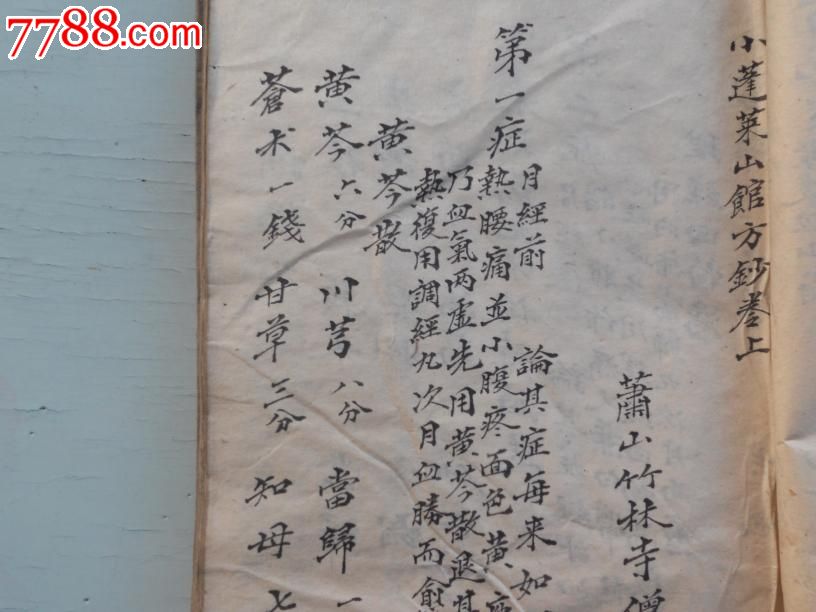 7788.com
小蓬萊山館方鈔卷上
蕭山竹林寺僧
第一症 月經前 論其症每来如
熱腰痛並小腹疼面色黄
乃血氣两虚先用黄芩散退其
熱復用調經丸次月血勝而愈
黄芩散
黄芩六分 川芎八分 當歸一
蒼术一錢 甘草三分 知母七